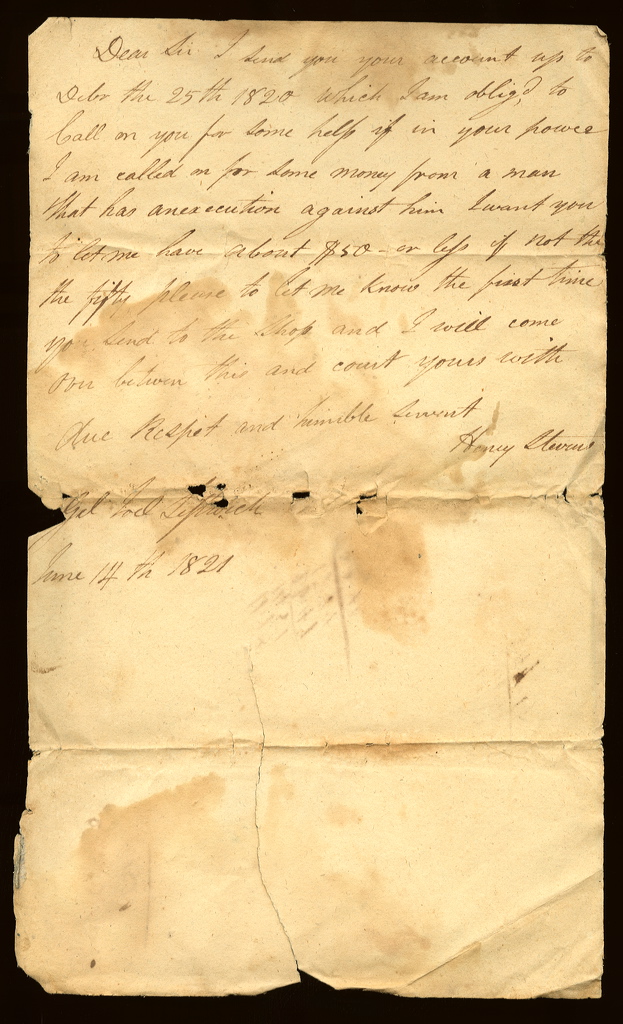 Dear Sir I send you your account up to
Debr the 25th 1820 which I am oblig'd to
Call on you for some help if in your power
I am called on for some money from a man
that has an execution against him I want you
to let me have about $50 - or less if not the
the fifty please to let me know the first time
you send to the Shop and I will come
over betwen this and court yours with
due Respet and humble servent
Henry Stevens
Gel Joel Leftwich
June 14th 1821